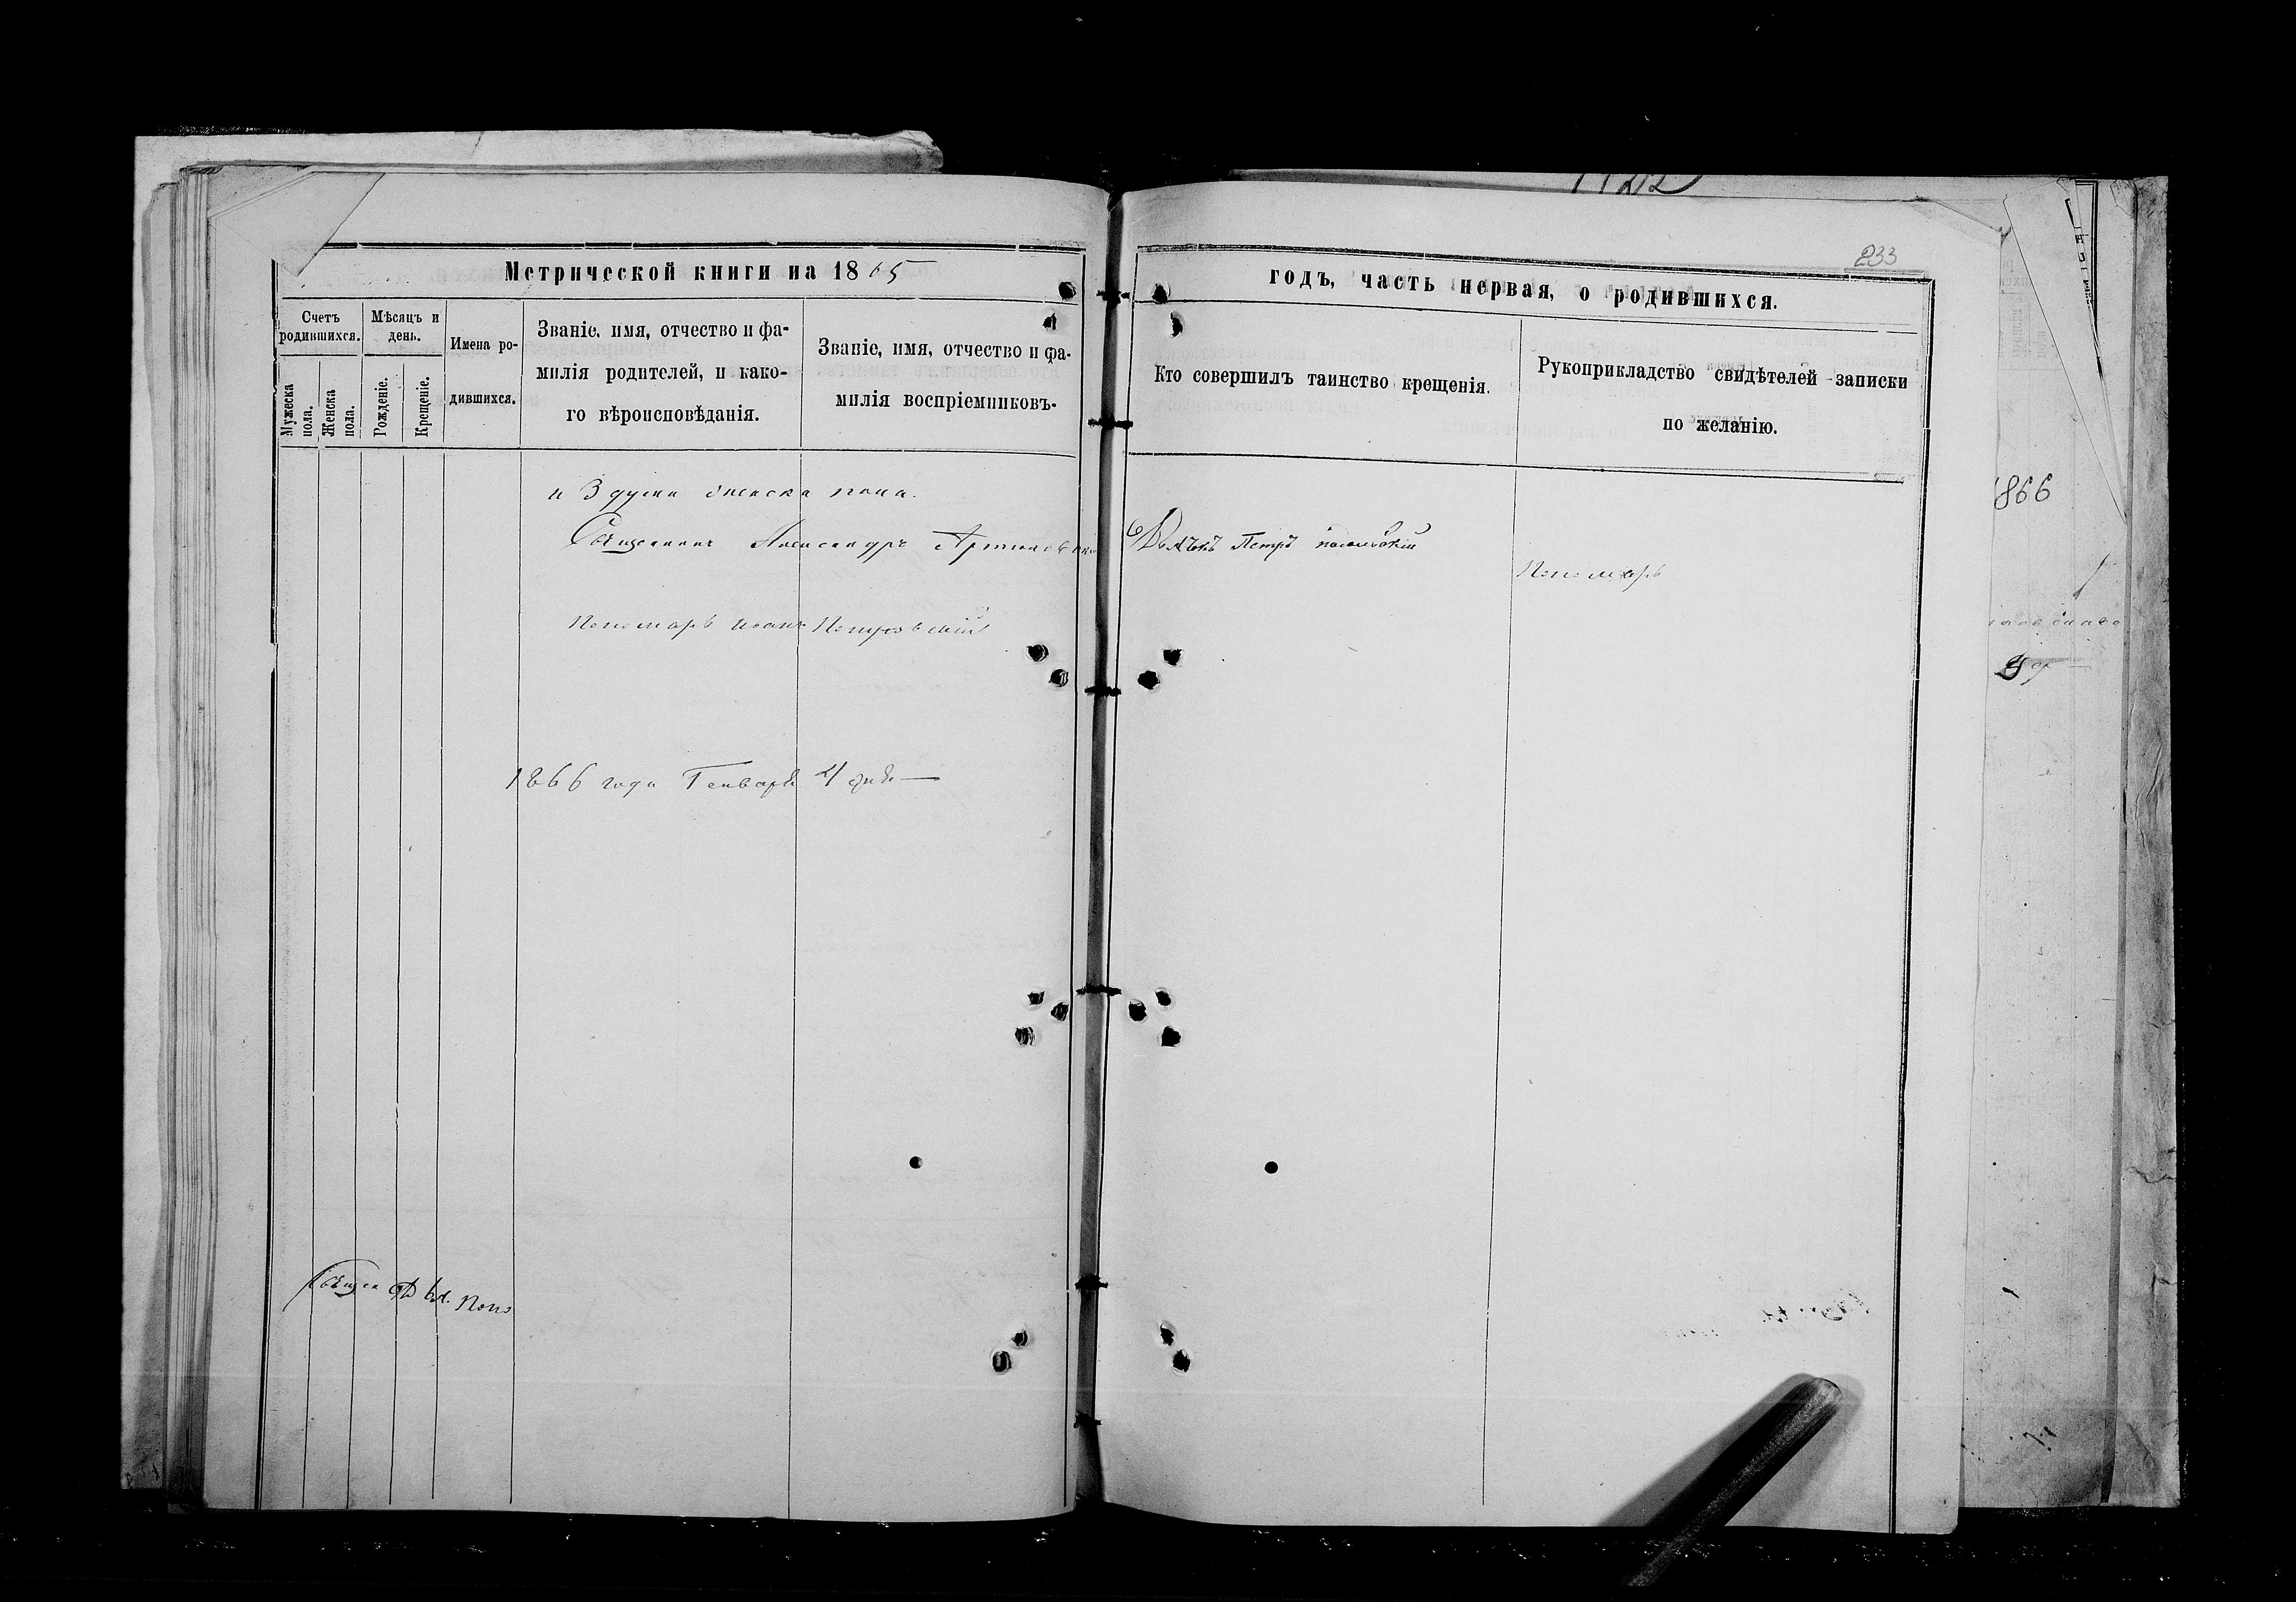 233
Метрической книги на 1865
годъ, часть первая, о родившихся.
Счетъ родившихся.
Мужеска пола.
Женска пола.
Мѣсяцъ и день.
Рожденіе.
Крещеніе.
Имена родившихся.
Званіе, имя, отчество и фа-
милія родителей, и како-
го вѣроисповѣданія.
Званіе, имя, отчество и фа-
милія воспріемниковъ.
Кто совершилъ таинство крещенія.
Рукоприкладство свидѣтелей записки
по желанію.
и 3 души женска пола.
Священникъ Александръ
Дьячкъ Петръ
Пономарь
Пономарь Иоанъ Петровскій
1866 года Генваря 4 дня
Священ Дья. Поно
1866